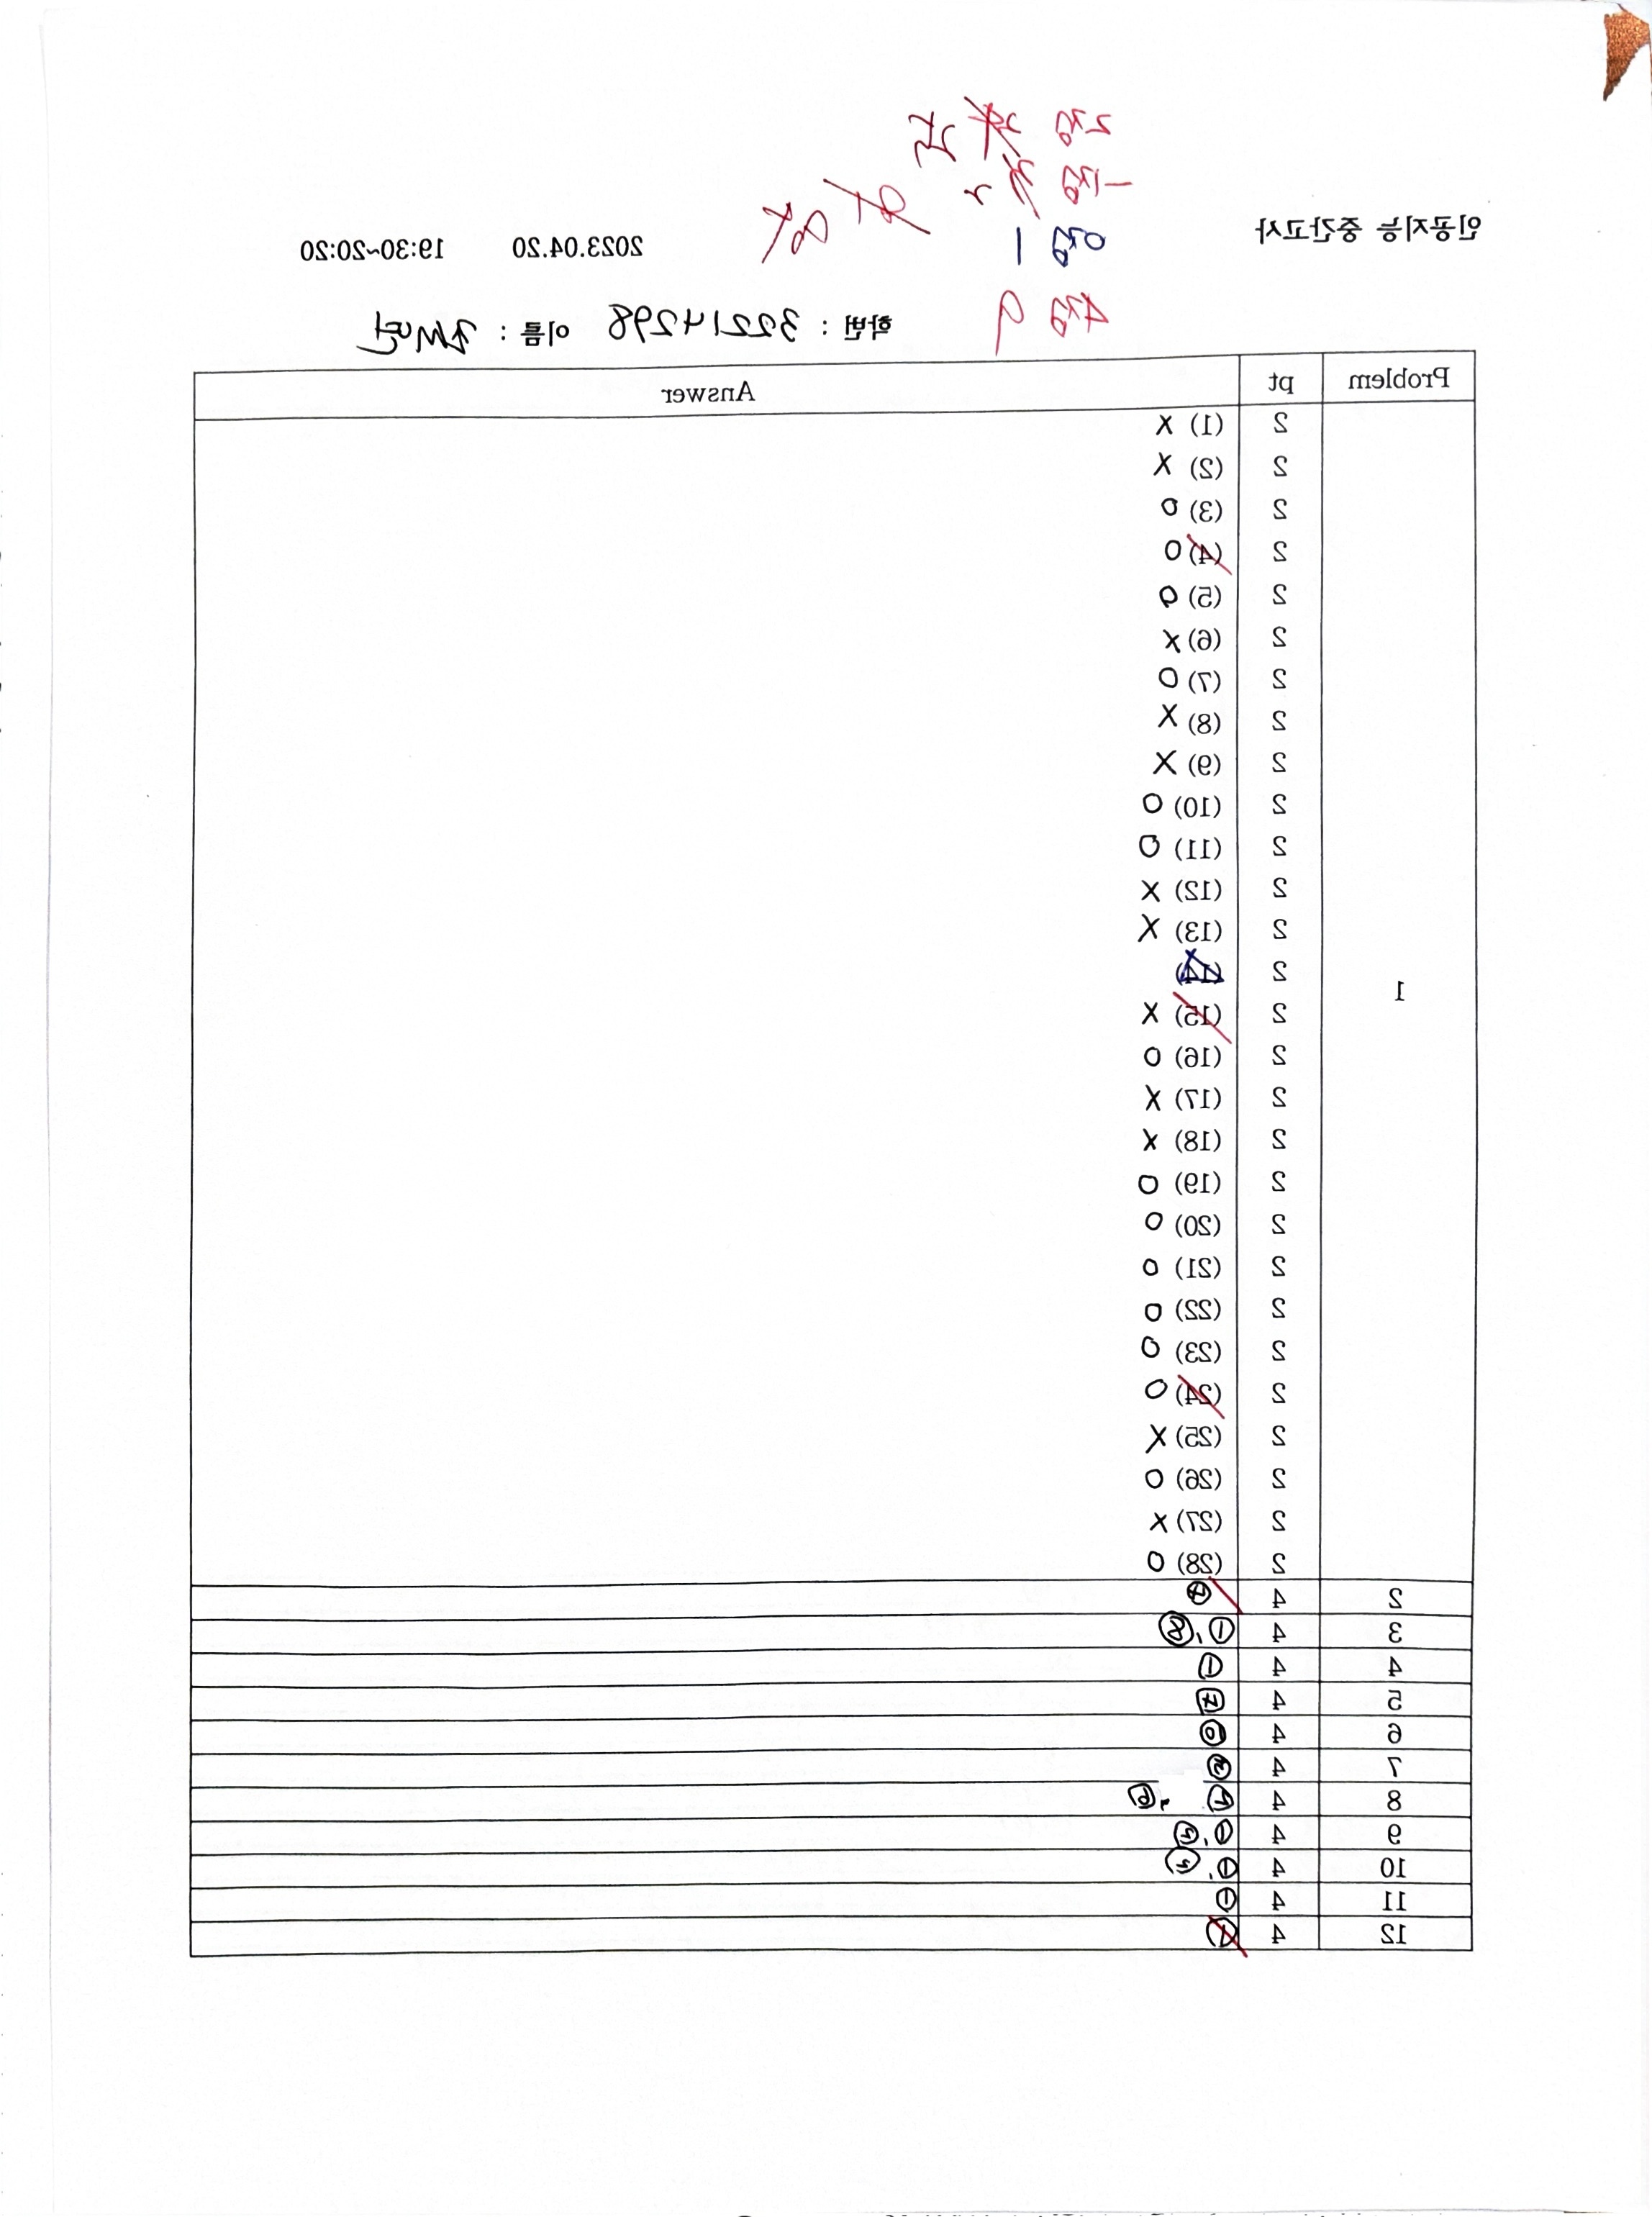 2점
-1점
0점 1
4점 9
인공지능 중간고사 2023.04.20 19:30~20:20
학번 : 32214298 이름 :
Problem pt Answer
1
2 (1) X
2 (2) X
2 (3) O
2 (4) O
2 (5) O
2 (6) X
2 (7) O
2 (8) X
2 (9) X
2 (10) O
2 (11) O
2 (12) X
2 (13) X
2 (14)
2 (15) X
2 (16) O
2 (17) X
2 (18) X
2 (19) O
2 (20) O
2 (21) O
2 (22) O
2 (23) O
2 (24) O
2 (25) X
2 (26) O
2 (27) X
2 (28) O
2 4
3 4 ①, ⑧
4 4 ①
5 4 ⑦
6 4 ⑩
7 4
8 4
9 4 ①,
10 4 ①,
11 4 ①
12 4